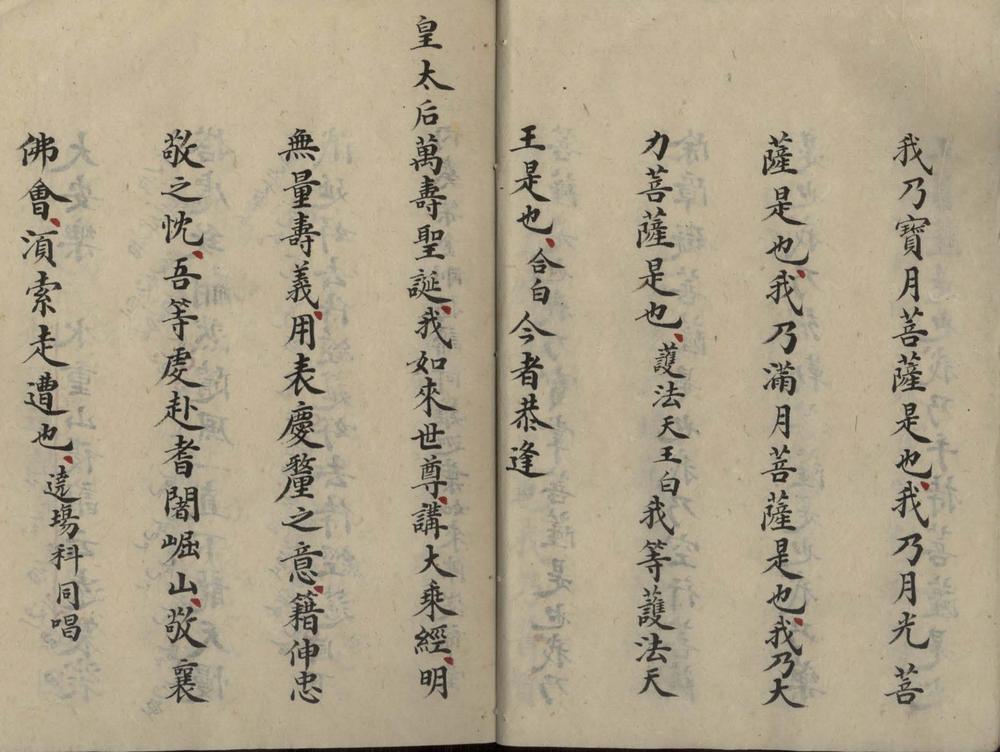 我乃寶月菩薩是也、我乃月光菩
薩是也、我乃滿月菩薩是也、我乃大
力菩薩是也、護法天王白我等護法天
王是也、合白今者恭逢
皇太后萬壽聖誕、我如來世尊、講大乘經、明
無量壽義、用表慶釐之意、籍伸忠
敬之忱、吾等處赴耆闍崛山、敬襄
佛會、須索走遭也、遶場科同唱